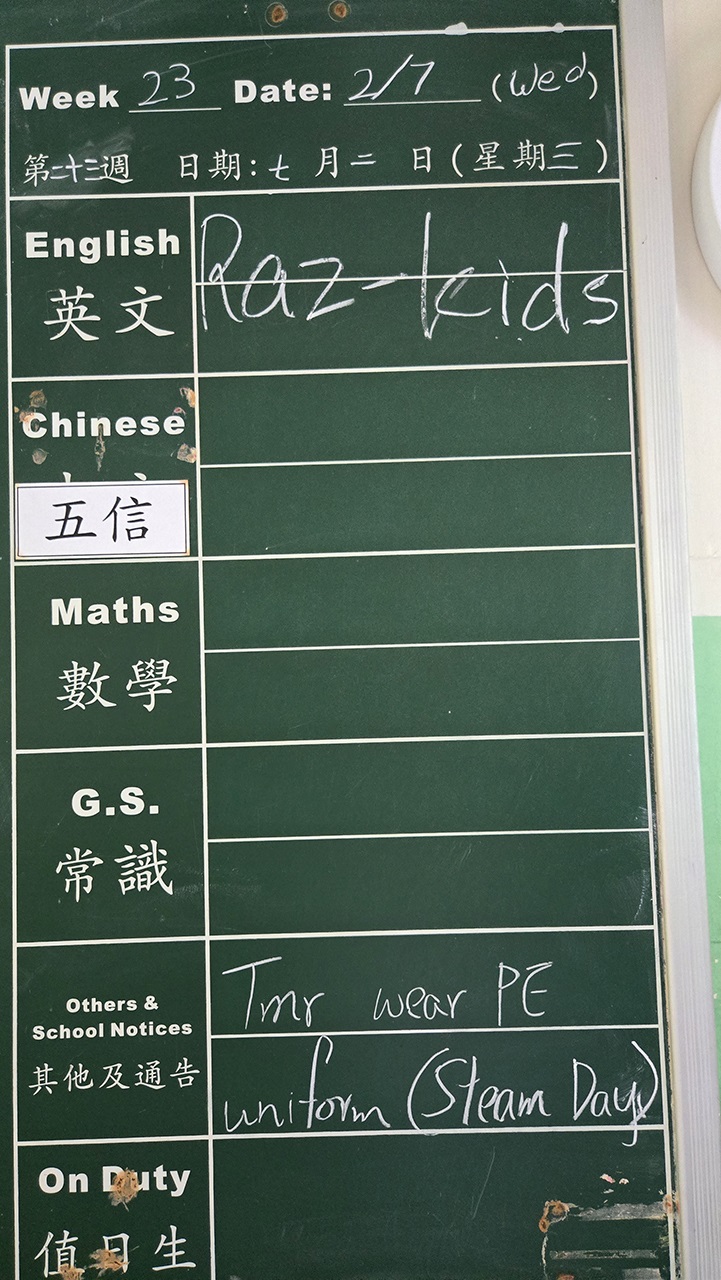 Week 23 Date: 2/7 (Wed)
第二十三週 日期:七月二日(星期三)
English
英文
Raz-kids
Chinese
五信
Maths
數學
G.S.
常識
Others &
School Notices
其他及通告
Tmr wear PE
uniform (Steam Day)
On Duty
值日生